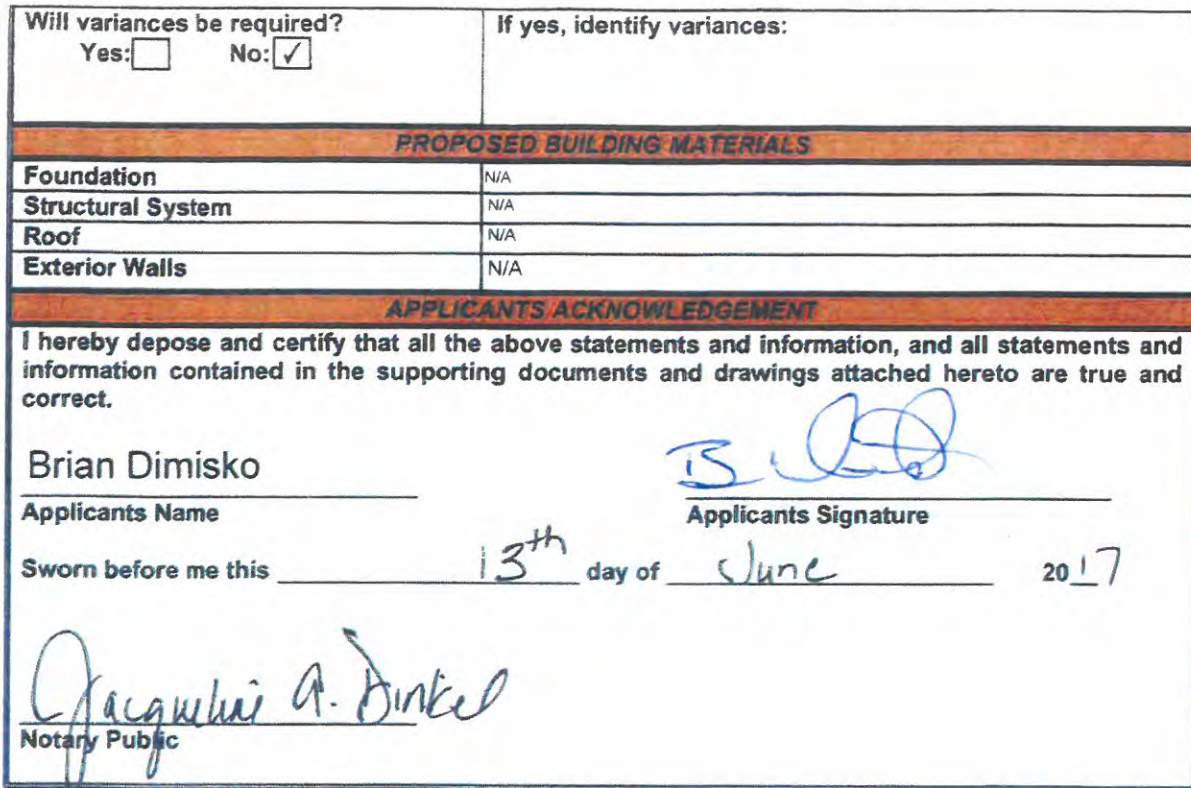 Will variances be required?
Yes: No: ✓
If yes, identify variances:
PROPOSED BUILDING MATERIALS
Foundation N/A
Structural System N/A
Roof N/A
Exterior Walls N/A
APPLICANTS ACKNOWLEDGEMENT
I hereby depose and certify that all the above statements and information, and all statements and
information contained in the supporting documents and drawings attached hereto are true and
correct.
Brian Dimisko
Applicants Name
Applicants Signature
Sworn before me this 13th day of June 2017
Jacqueline A. Dinkel
Notary Public